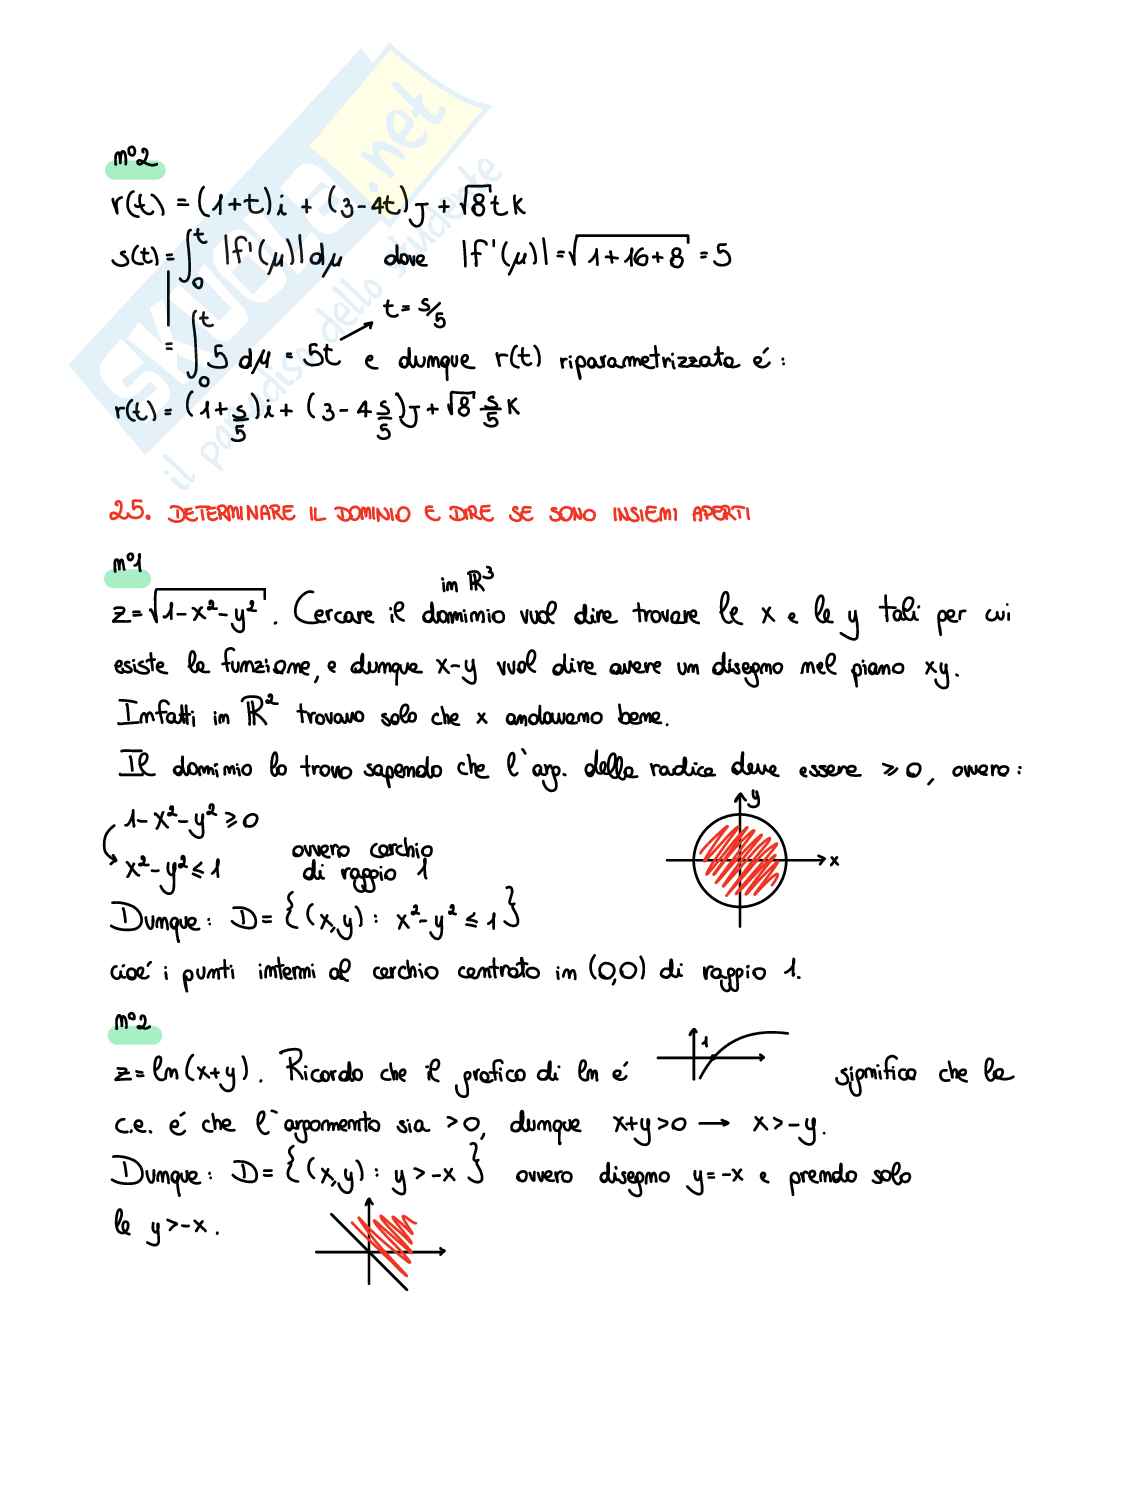 n°2
r(t) = (1+t)i + (3-4t)J + √8 t K
s(t) = ∫₀ᵗ |f'(μ)| dμ dove |f'(μ)| = √1+16+8 = 5
t = s/5
= ∫₀ᵗ 5 dμ = 5t e dunque r(t) riparametrizzata é:
r(t) = (1+s/5)i + (3-4 s/5)J + √8 s/5 K
25. DETERMINARE IL DOMINIO E DIRE SE SONO INSIEMI APERTI
n°1
in ℝ³
z=√1-x²-y². Cercare il dominio vuol dire trovare le x e le y tali per cui
esiste la funzione, e dunque x-y vuol dire avere un disegno nel piano xy.
Infatti in ℝ² trovavo solo che x andavano bene.
Il dominio lo trovo sapendo che l'arg. della radice deve essere ≥0, ovvero:
1-x²-y² ≥ 0
x²-y² ≤ 1 ovvero cerchio di raggio 1
y
x
Dunque: D={(x,y): x²-y² ≤ 1}
cioé i punti interni al cerchio centrato in (0,0) di raggio 1.
n°2
z=ln(x+y). Ricordo che il grafico di ln é 1 significa che la
c.e. é che l'argomento sia >0, dunque x+y>0 → x>-y.
Dunque: D={(x,y): y>-x} ovvero disegno y=-x e prendo solo
le y>-x.
SKUOLA.net
il paradiso dello studente